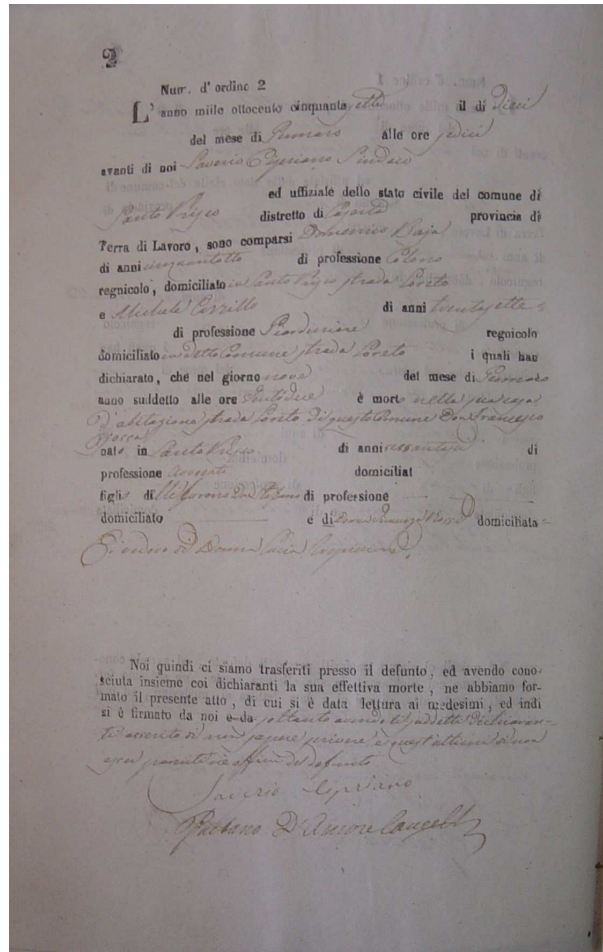 2
Num. d'ordine 2
L'anno mille ottocento cinquanta sette il di Dieci
del mese di Gennaro alle ore sedici
avanti di noi Saverio Cipriano Sindaco
ed uffiziale dello stato civile del comune di
Santo Prisco distretto di Caserta provincia di
Terra di Lavoro, sono comparsi Domenico Baja
di anni cinquantotto di professione Colono
regnicolo, domiciliato in Santo Prisco strada Loreto
e Michele Cozzillo di anni trentasette
di professione regnicolo
domiciliato in detto Comune strada Loreto i quali han
dichiarato, che nel giorno nove del mese di Gennaro
anno suddetto alle ore ventidue è morto nella sua casa
d'abitazione strada Loreto di questo Comune Don Francesco
nato in Santo Prisco di anni di
professione domiciliat
figlio di di professione
domiciliato e di domiciliata
di Donna
Noi quindi ci siamo trasferiti presso il defunto, ed avendo cono-
sciuta insieme coi dichiaranti la sua effettiva morte, ne abbiamo for-
mato il presente atto, di cui si è data lettura ai medesimi, ed indi
si è firmato da noi e da soltanto avendo i suddetti dichiaran-
ti asserito di non sapere scrivere, e quest'ultimi di non
esser parenti nè affini del defunto
Saverio Cipriano
Gaetano D'Amore Cancell